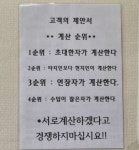 고객의 제안서
** 계산 순위**
1순위 : 초대한자가 계산한다
2순위 : 마지막보다 현자인이 계산한다
3순위 : 연장자가 계산한다
4순위 : 수입이 많은자가 계산한다
*서로계산하겠다고
경쟁하지마십시요!!